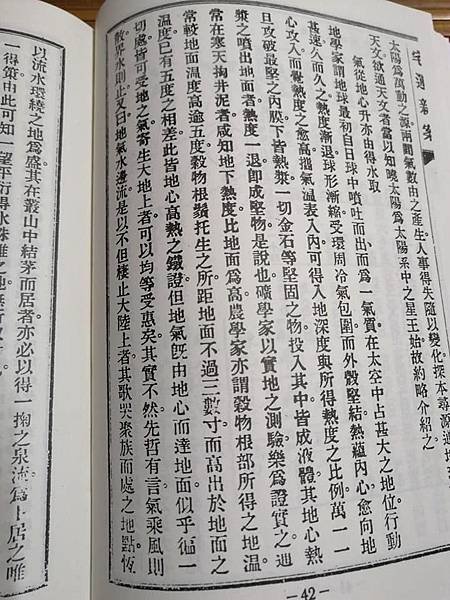 宅運新案
太陽爲萬動之說兩間氣數由之產生人事得失隨以變化探本尋源通地
天文欲通天文者當以知曉太陽爲太陽系中之星王始故約略介紹之
氣從地心升亦由得水取
地學家謂地球最初自日球中噴吐而出而爲一氣質在太空中占甚大之地位行動
甚速久而久之熱度漸退球形漸縮受環周冷氣包圍而外殼堅結熱蘊內心愈向地
心攻入而覺熱度之愈高攜氣溫表入內可得入地深度與所得熱度之比例萬一一
旦攻破最堅之內膜下皆熱漿一切金石等堅固之物投入其中皆成液體其地心熱
漿之噴出地面者熱度一退即成堅物是說也礦學家以實地之測驗樂爲證實之迴
常在寒天掏井泥者咸知地下熱度比地面爲高農學家亦謂穀物根部所得之地溫
常較地面溫度高逾五度穀物根鬚托生之所距地面不過三數寸而高出於地面之
溫度已有五度之相差此皆地心高熱之鐵證但地氣旣由地心而達地面似乎徧一
切處皆可受地之氣寄生大地上者可以均等受惠矣其實不然先哲有言氣乘風則
散界水則止又曰地氣水邊流是以不但棲止大陸上者其歌哭聚族而處之地點恆
—42—
以流水環繞之地爲盛其在叢山中結茅而居者亦必以得一掬之泉流爲卜居之唯
一得策由此可知一望平衍得水